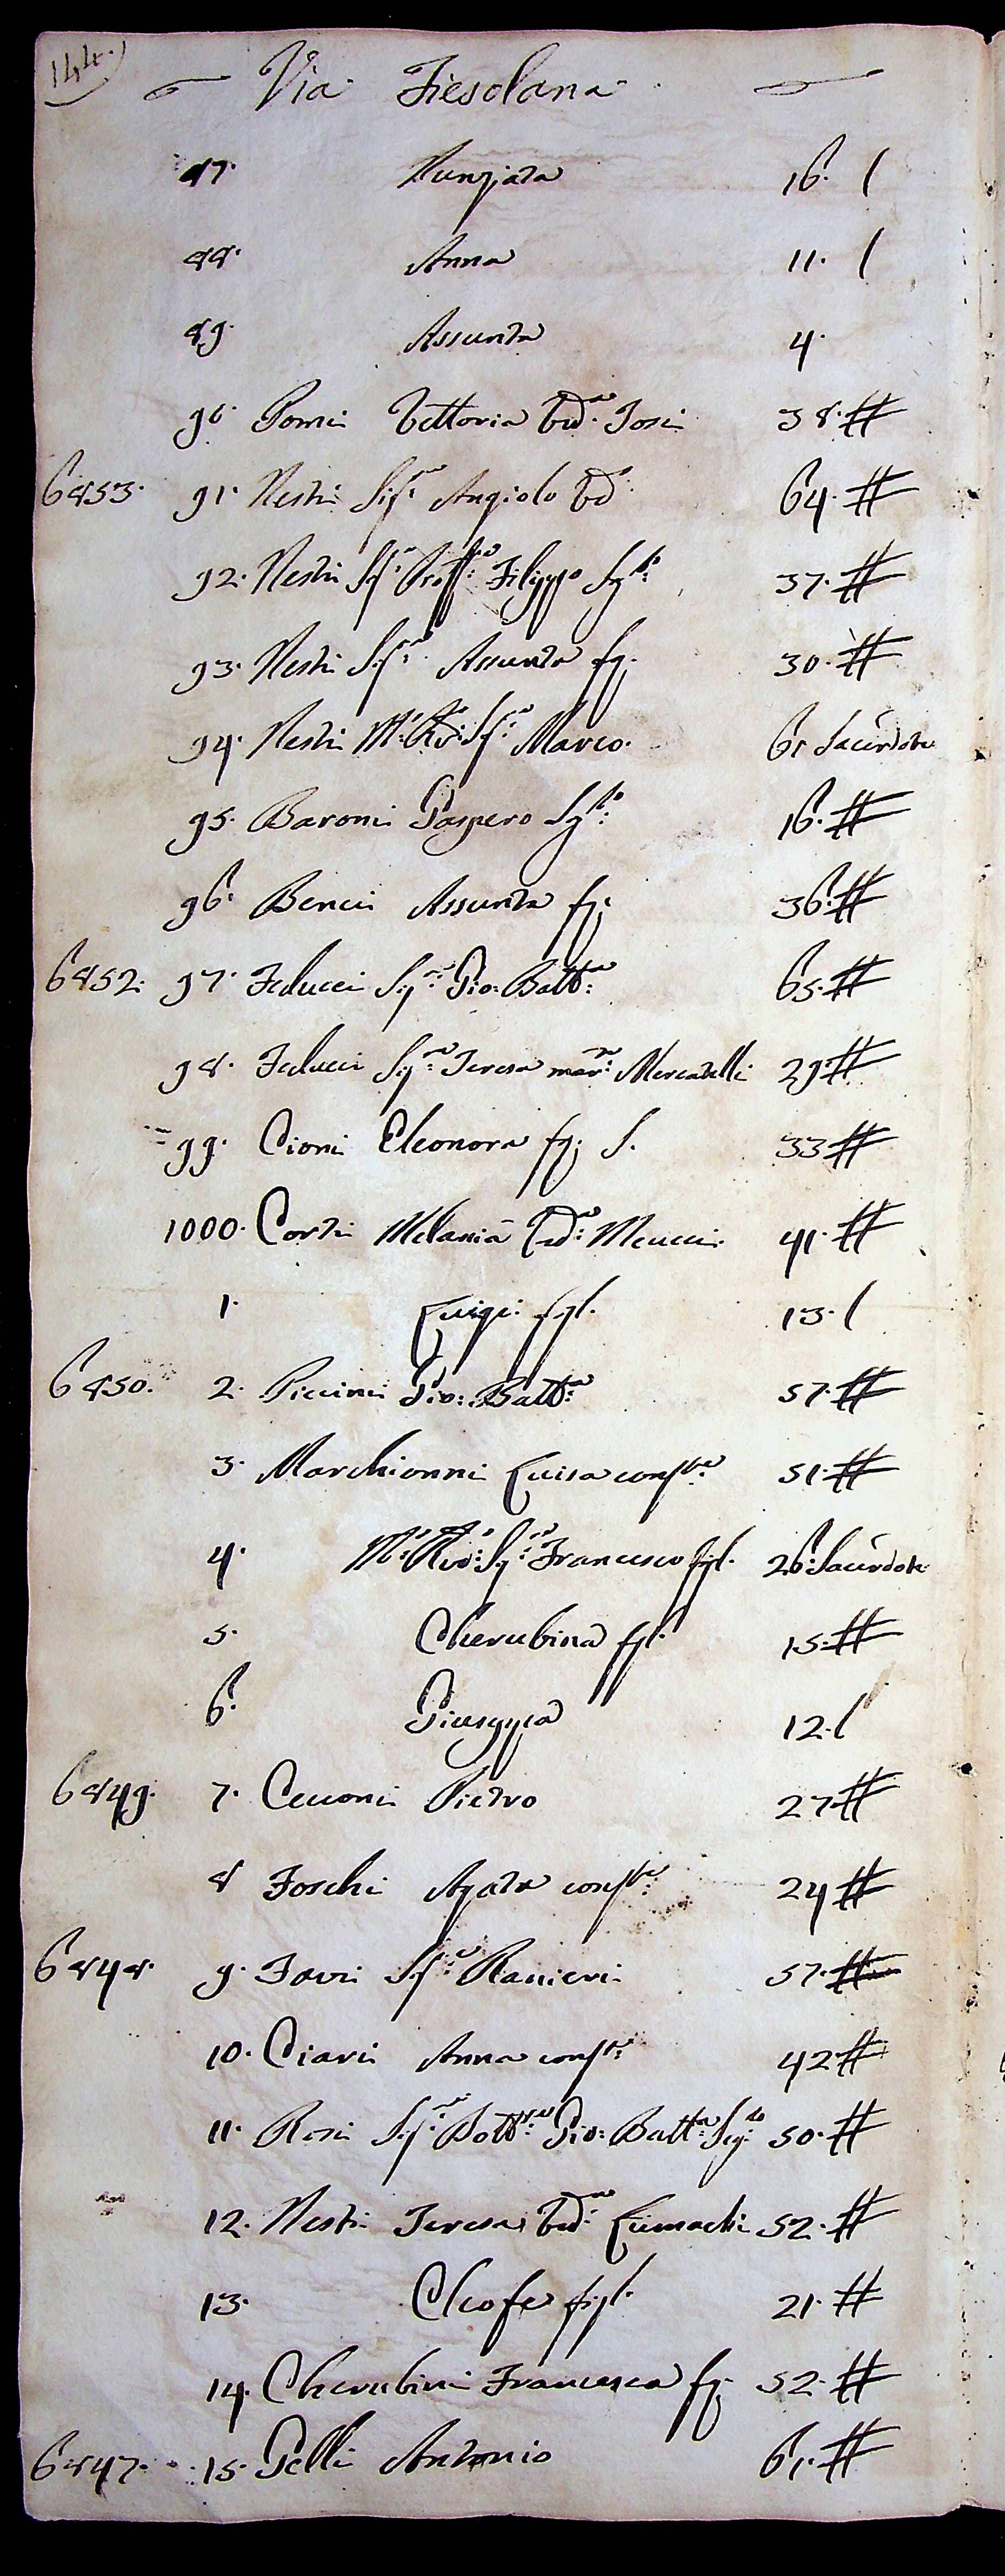 144.
Via Fiesolana
87. Nunziata 16. (
88. Anna 11. (
89. Assunta 4.
90. Pomi Vettoria Vedª. Tosi 38. #
6853. 91. Nesti Sigʳ. Angiolo Vdº 64. #
92. Nesti Sigʳ. Proffʳᵉ. Filippo Sgˡᵒ: 37. #
93. Nesti Sigʳª. Assunta fg. 30. #
94. Nesti Mº: Rdº: Sigʳᵉ: Marco. 61 Sacerdote
95. Baroni Gaspero Sgˡᵒ: 16. #
96. Benci Assunta fg: 36. #
6852. 97. Feducci Sigʳᵉ Gio: Battª: 65. #
98. Feducci Sigʳª: Teresa marª: Mercatelli 29. #
99. Cioni Eleonora fg; S. 33 #
1000. Corti Melania Vedª: Meucci. 41. #
1. Luigi figl. 13. (
6850. 2. Piccini Gio: Battª: 57. #
3. Marchionni Luisa consᵗᵉ: 51. #
4. Mº: Rdº: Sigʳᵉ: Francesco figl. 26. Sacerdote
5. Cherubina figl. 15. #
6. Giuseppa 12. (
6849. 7. Cecconi Pietro 27 #
8 Foschi Agata consᵗᵉ: 24 #
6848. 9. Favi Sigʳᵉ Ranieri. 57. #
10. Ciari Anna consᵗᵉ: 42 #
11. Rosi Sigʳᵉ: Dottʳᵉ: Gio: Battª: Sgˡᵒ 50. #
12. Nesti Teresa Vedª: Lumachi 52. #
13. Cleofe figl. 21. #
14. Cherubini Francesca fg. 52. #
6847. 15. Gelli Antonio 61. #